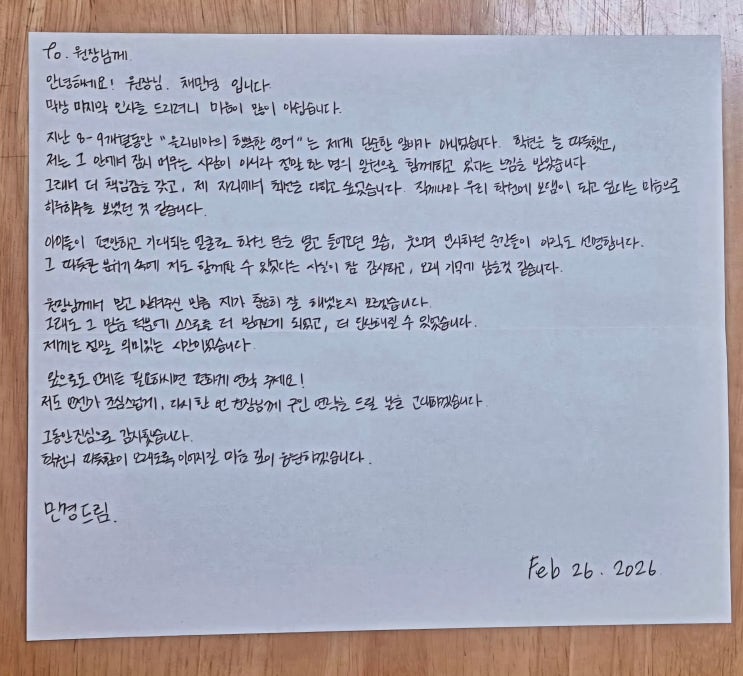 To. 원장님께
안녕하세요! 원장님. 채민경 입니다.
막상 마지막 인사를 드리려니 마음이 많이 아쉽습니다.
지난 8-9개월동안 "올리비아의 행복한 영어"는 제게 단순한 일터가 아니었습니다. 학원은 늘 따뜻했고,
저는 그 안에서 잠시 머무는 사람이 아니라 정말 한 명의 일원으로 함께하고 있다는 느낌을 받았습니다.
그래서 더 책임감을 갖고, 제 자리에서 최선을 다하고 싶었습니다. 작게나마 우리 학원에 보탬이 되고 싶다는 마음으로
하루하루를 보냈던 것 같습니다.
아이들이 편안하고 기대되는 얼굴로 학원 문을 열고 들어오던 모습, 웃으며 인사하던 순간들이 아직도 선명합니다.
그 따뜻한 분위기 속에 저도 함께할 수 있었다는 사실이 참 감사하고, 오래 기억에 남을것 같습니다.
원장님께서 믿고 맡겨주신 만큼 제가 충분히 잘 해냈는지 모르겠습니다.
그래도 그 믿음 덕분에 스스로를 더 믿게 되었고, 더 단단해질 수 있었습니다.
제게는 정말 의미있는 시간이었습니다.
앞으로도 언제든 필요하시면 편하게 연락 주세요!
저도 언젠가 조심스럽게, 다시 한 번 원장님께 구인 연락을 드릴 날을 고대하겠습니다.
그동안 진심으로 감사했습니다.
학원의 따뜻함이 오래도록 이어지길 마음 깊이 응원하겠습니다.
민경드림.
Feb 26. 2026